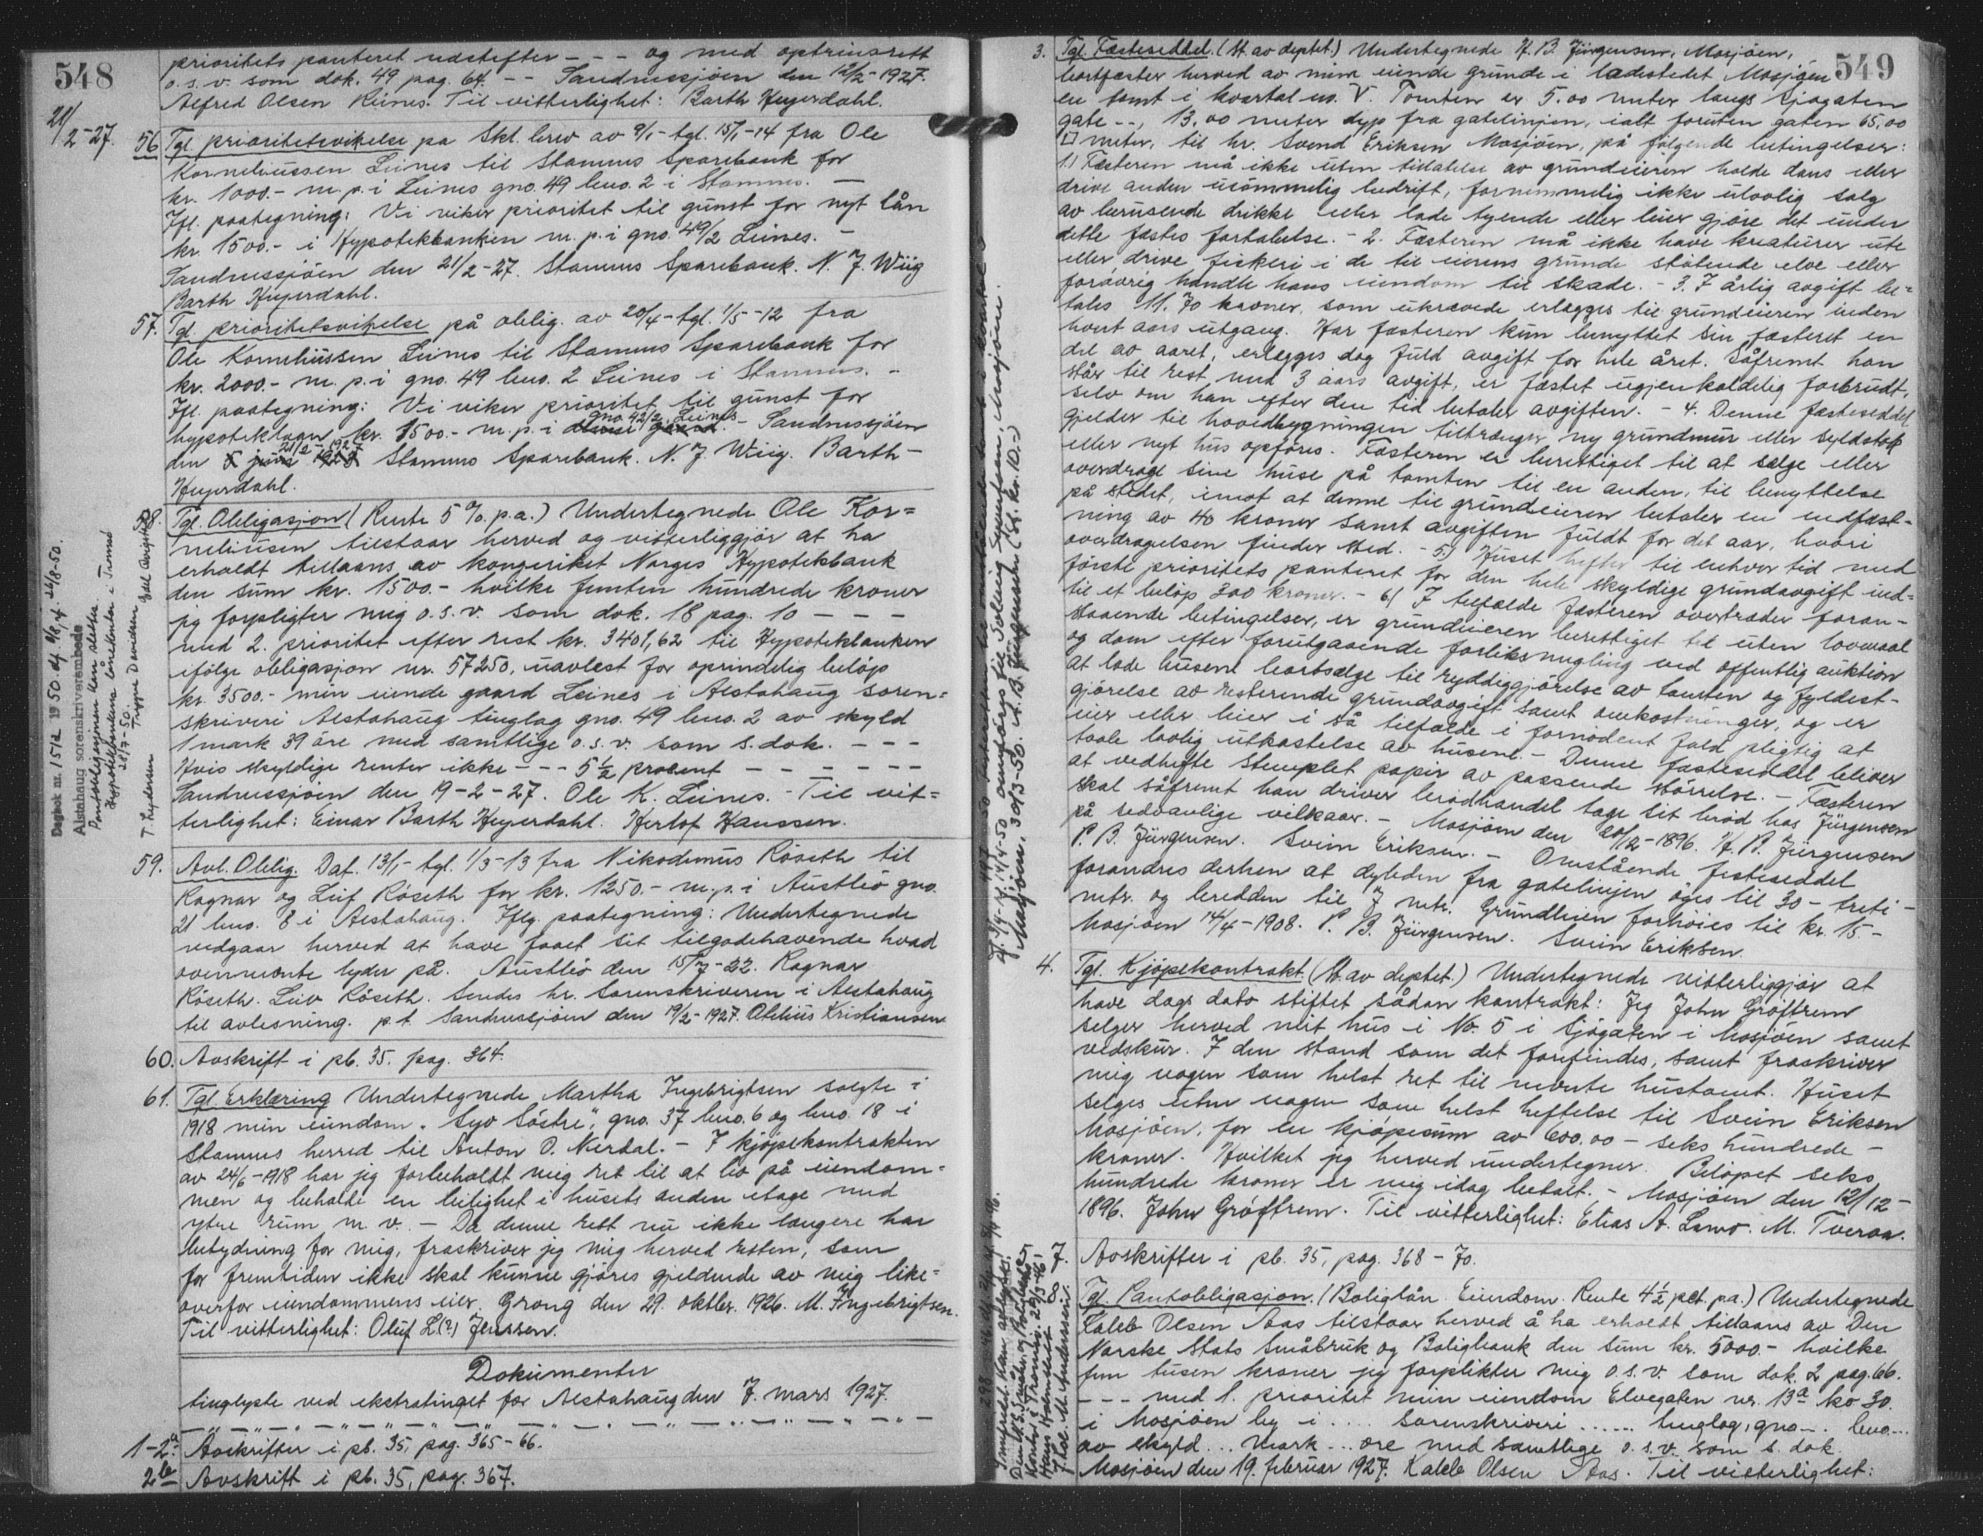 548
prioritets panteret udstefter - - - og med optrinsrett
o.s.v. som dok. 49 pag. 64. - - Sandnessjøen den 12/2-1927.
Alfred Olsen Reines. Til vitterlighet: Barth Heyerdahl.
21/2-27.
56 Tgl. prioritetsvikelse på Skl. brev av 9/1- tgl. 15/1-14 fra Ole
Korneliussen Leines til Stamnes Sparebank for
kr. 1000.- m.p. i Leines gno. 49 bno. 2 i Stamnes. -
Ifl. paategning: Vi viker prioritet til gunst for nyt lån
kr. 1500.- i Hypotekbanken m.p. i gno. 49/2 Leines. -
Sandnessjöen den 21/2-27. Stamnes Sparebank. N. J. Wiig
Barth Heyerdahl.
57. Tgl. prioritetsvikelse på oblig. av 20/4- tgl. 1/5-12 fra
Ole Korneliussen Leines til Stamnes Sparebank for
kr. 2000.- m.p. i gno. 49 bno. 2 Leines i Stamnes. -
Ifl. paategning: Vi viker prioritet til gunst for
gno. 49/2 Leines
hypoteklagn kr. 1500.- m.p. i - Sandnessjöen
21/2-1927
den Stamnes Sparebank. N. J. Wiig. Barth-
Heyerdahl.
58. Tgl. Obligasjon (Rente 5 % p.a.) Undertegnede Ole Kor=
neliusen tilstaar herved og vitterliggjör at ha
erholdt tillaans av kongeriket Norges Hypotekbank
den sum kr. 1500.- hvilke femten hundrede kroner
jeg forpligter mig o.s.v. som dok. 18 pag. 10 - - -
med 2. prioritet efter rest kr. 3401,62 til Hypotekbanken
ifölge obligasjon nr. 57250, uavlest for oprindelig belöp
kr. 3500.- min eiende gaard Leines i Alstahaug soren=
skriveri Alstahaug tinglag gno. 49 bno. 2 av skyld
1 mark 39 öre med samtlige o.s.v. som s. dok. - - -
Hvis skyldige renter ikke - - - 5 1/2 procent - - - - - -
Sandnessjöen den 19-2-27. Ole K. Leines. - Til vit=
terlighet: Einar Barth Heyerdahl. Herlof Hanssen.
Dagbok nr. 1512 1950. af. 4/8, af. 24/8-50.
Alstahaug sorenskriverembede
Pantobligasjonen kan slettes
Hypotekbankens lånekontor i Tromsö
28/7-50.
T. Lydersen Trygve Davidsen
59. Avl. Oblig. Dat. 13/1- tgl. 1/3-13 fra Nikodemus Röseth til
Ragnar og Leif Röseth for kr. 1250.- m.p. i Austbö gno.
21 bno. 8 i Alstahaug. Iflg. paategning: Undertegnede
vedgaar herved at have faaet sit tilgodehavende hvad
ovennævnte lyder på. Austbö den 15/7-22. Ragnar
Röseth. Leiv Röseth. Sendes hr. Sorenskriveren i Alstahaug
til avlesning. p.t. Sandnessjöen den 19/2-1927. Olelius Kristiansen
60. Avskrift i pb. 35. pag. 364.
61. Tgl. Erklæring Undertegnede Martha Ingebrigtsen solgte i
1918 min eiendom „Syv Söstre", gno. 37 bno. 6 og bno. 18 i
Stamnes herred til Anton O. Nerdal. - I kjöpekontrakten
av 24/6-1918 har jeg forbeholdt mig ret til at bo på eiendom=
men og beholde en leilighet i husets anden etage med
ytre rum m.v. - Da denne rett nu ikke længere har
betydning for mig, fraskriver jeg mig herved retten, som
for fremtiden ikke skal kunne gjöres gjeldende av mig like=
overfor eiendommens eier. Grong den 29. oktbr. 1926. M. Ingebrigtsen.
Til vitterlighet: Oluf L(?) Jenssen.
Dokumenter
tinglyste ved ekstratinget for Alstahaug den 7. mars 1927.
1-2a Avskrifter i pb. 35, pag. 365-66.
2b Avskrift i pb. 35, pag. 367.
549
3. Tgl. Fæsteseddel. (St. av deptet.) Undertegnede P. B. Jürgensen, Mosjöen,
bortfæster herved av mine eiende grunde i ladestedet Mosjöen
en tomt i kvartal no. V. Tomten er 5.00 meter langs Sjøgaten
gate --, 13,00 meter dyp fra gatelinjen, ialt foruten gaten 65,00
□ meter, til hr. Svend Eriksen Mosjöen, på fölgende betingelser:
1.) Fæsteren må ikke uten tilladelse av grundeieren holde dans eller
drive anden usömmelig bedrift, fornemmelig ikke ulovlig salg
av berusende drikke eller lade tyende eller leier gjöre det under
dette fæstes fortabelse. - 2. Fæsteren må ikke have kreaturer ute
eller drive fiskeri i de til eierens grunde stötende elve eller
forövrig handle hans eiendom til skade. - 3. I årlig avgift be=
tales 11.70 kroner, som ukrævede erlægges til grundeieren inden
hvert aars utgang. Har fæsteren kun benyttet sin fæsteret en
del av aaret, erlegges dog fuld avgift for hele året. Såfremt han
står til rest med 3 aars avgift, er fæstet ugjenkaldelig forbrudt,
selv om han efter den tid betaler avgiften. - 4. Denne fæsteseddel
gjelder til hovedbygningen tiltrænger ny grundmur eller syldstok
eller nyt hus opföres. Fæsteren er berettiget til at sælge eller
overdrage sine huse på tomten til en anden, til benyttelse
på stedet, imot at denne til grundeieren betaler en indfæst-
ning av 40 kroner samt avgiften fuldt for det aar, hvori
overdragelsen finder sted. - 5) Huset hefter til enhver tid med
förste prioritets panteret for den hele skyldige grundavgift ind-
til et belöp 300 kroner. - 6) I tilfælde fæsteren overtræder foran-
staaende betingelser, er grundeieren berettiget til uten lovmaal
og dom efter forutgaaende forliksmegling ved offentlig auktion
at lade husene bortsælge til ryddiggjörelse av tomten og fyldest-
gjörelse av resterende grundavgift samt omkostninger, og er
eier eller leier i så tilfælde i fornödent fald pligtig at
taale lovlig utkastelse av husene. - Denne fæsteseddel bliver
at vedhefte stemplet papir av passende störrelse. - Fæsteren
skal såfremt han driver brödhandel tage sit bröd hos Jürgensen
på sedvanlige vilkaar. - Mosjöen den 20/12-1896. P. B. Jürgensen
P. B. Jürgensen. Svein Eriksen. - Omstående festeseddel
forandres derhen at dybden fra gatelinjen öges til 30 - treti -
mtr. og bredden til 7 mtr. Grundleien forhöies til kr. 15-
Mosjöen 14/4-1908. P. B. Jürgensen. Svein Eriksen
4. Tgl. Kjöpekontrakt (St. av deptet.) Undertegnede vitterliggjör at
have dags dato stiftet sådan kontrakt: Jeg John Gröftrem
selger herved mit hus i No. 5 i Sjögaten i Mosjöen samt
vedskur. I den stand som det forefindes, samt fraskriver
mig nogen som helst ret til nevnte hustomt. Huset
selges uten nogen som helst heftelse til Svein Eriksen
Mosjöen, for en kjöpesum av 600,00 - seks hundrede -
kroner. Hvilket jeg herved undertegner. Belöpet seks
hundrede kroner er mig idag betalt. - Mosjöen den 12/12-
1896. John Gröftrem. Til vitterlighet: Elias A. Lamo. M. Tveraa.
7. Avskrifter i pb. 35, pag. 368-70.
8. Tgl. Pantobligasjon. (Boliglån. Eiendom. Rente 4 1/2 pct. p.a.) Undertegnede
Caleb Olsen Aas tilstaar herved å ha erholdt tillaans av Den
Norske Stats Småbruk og Boligbank den sum kr. 5000.- hvilke
fem tusen kroner jeg forplikter mig o.s.v. som dok. 2 pag. 66.
- - - med 1. prioritet min eiendom Elvegaten nr. 13a ko 30.
i Mosjöen by i .... Sorenskriveri ...... tinglag, gno... bno...
av skyld ... mark ... öre med samtlige o.s.v. som s. dok.
Mosjöen den 19. februar 1927. Kaleb Olsen Aas. Til vitterlighet: